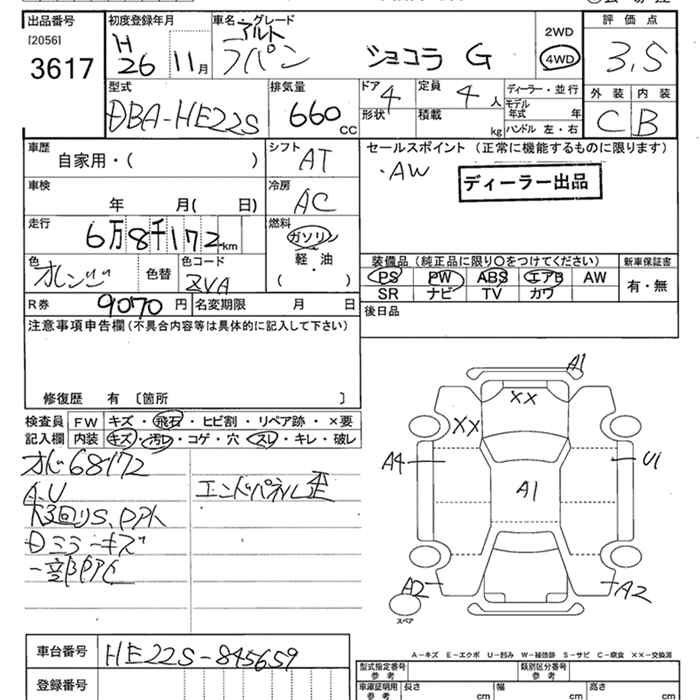 出品番号 初度登録年月 車名・グレード 評価点
[2056] H アルト 2WD
3617 26 11月 ラパン ショコラ G 4WD 3.5
型式 排気量 ドア 4 定員 4人 ディーラー・並行 外装 内装
DBA-HE22S 660cc 形状 積載 kg モデル年式 年 C B
ハンドル 左・右
車歴 シフト セールスポイント (正常に機能するものに限ります)
自家用・( ) AT ・AW
車検 冷房 ディーラー出品
年 月( 日) AC
走行 燃料
6万8千172km ガソリン
色 色コード 軽・油 装備品 (純正品に限り○をつけてください) 新車保証書
オレンジ 色替 ZVA ( ) PS PW ABS エアB AW 有・無
R券 9070円 名変期限 月 日 SR ナビ TV カワ
注意事項申告欄 (不具合内容等は具体的に記入して下さい) 後日品
修復歴 有 〔箇所 〕
検査員 FW キズ・飛石・ヒビ割・リペア跡・×要
記入欄 内装 キズ・汚レ・コゲ・穴・スレ・キレ・破レ
オド68172
A.U エンドパネル歪
下回りS、
ミラーキズ
一部
A1
XX
XX
A4 U1
A1
A2 A2
スペア
A-キズ E-エクボ U-凹み W-補修跡 S-サビ C-腐食 ××-交換済
車台番号 HE22S-845659
型式指定番号 参考 類別区分番号 参考
登録番号 車庫証明用 参考 長さ cm 幅 cm 高さ cm